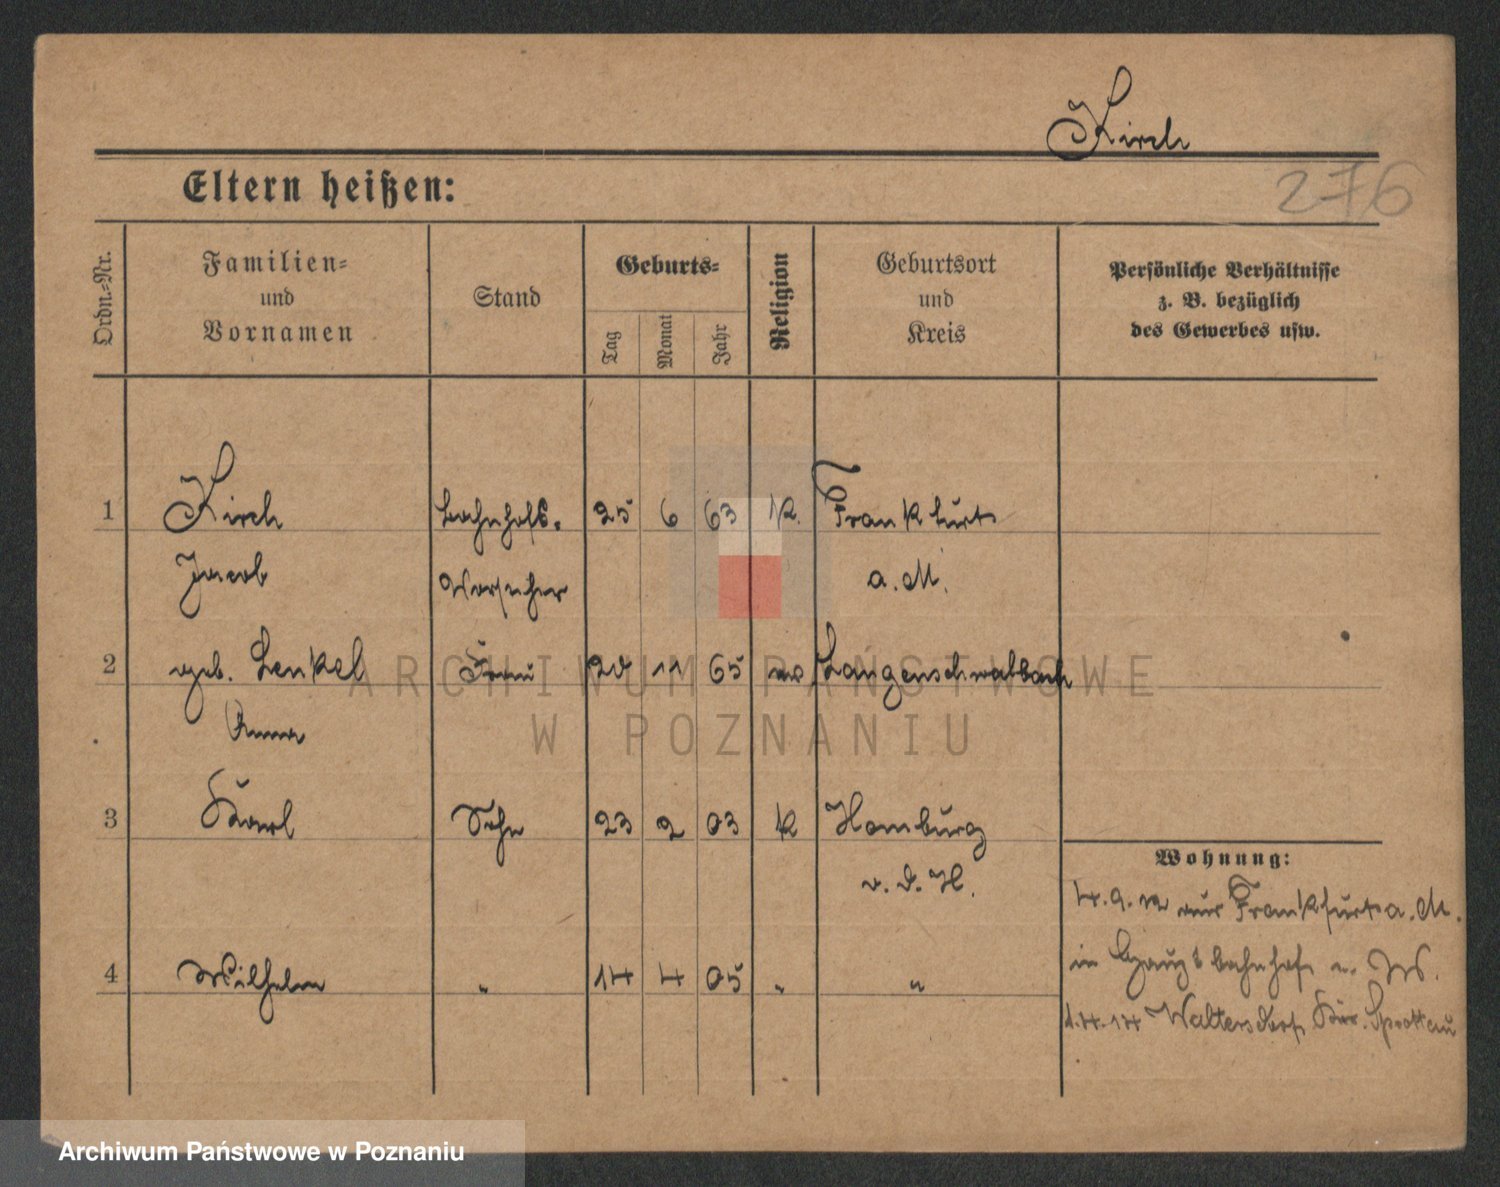 Kirch
276
Eltern heißen:
Ordn.-Nr.
Familien-
und
Vornamen
Stand
Geburts-
Tag
Monat
Jahr
Religion
Geburtsort
und
Kreis
Persönliche Verhältnisse
z. B. bezüglich
des Gewerbes usw.
1 Kirch Bahnhofs- 25 6 63 K. Frankfurt
Jacob Vorsteher a. M.
2 geb. Lenkel Frau 20 11 65 ev Langenschwalbach
Anna
3 Karl Sohn 23 2 03 K Homburg
v. d. H.
4 Wilhelm " 14 4 05 " "
Wohnung:
4. 9. aus Frankfurt a. M.
in Hauptbahnhof
1.4.14 Waltersdorf Kr. Sprottau
ARCHIWUM PAŃSTWOWE
W POZNANIU
Archiwum Państwowe w Poznaniu